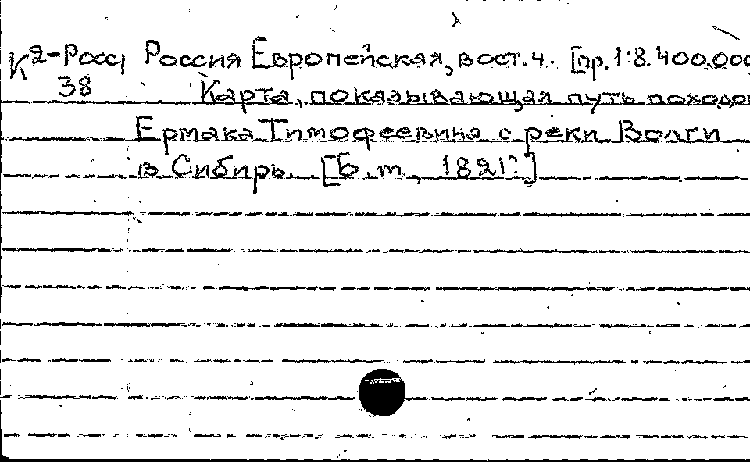 К2-Росс Россия Европейская, вост. ч. [пр. 1:8.400.000
38 Карта, показывающая путь походов
Ермака Тимофеевича с реки Волги
в Сибирь. [Б. т., 1821?]